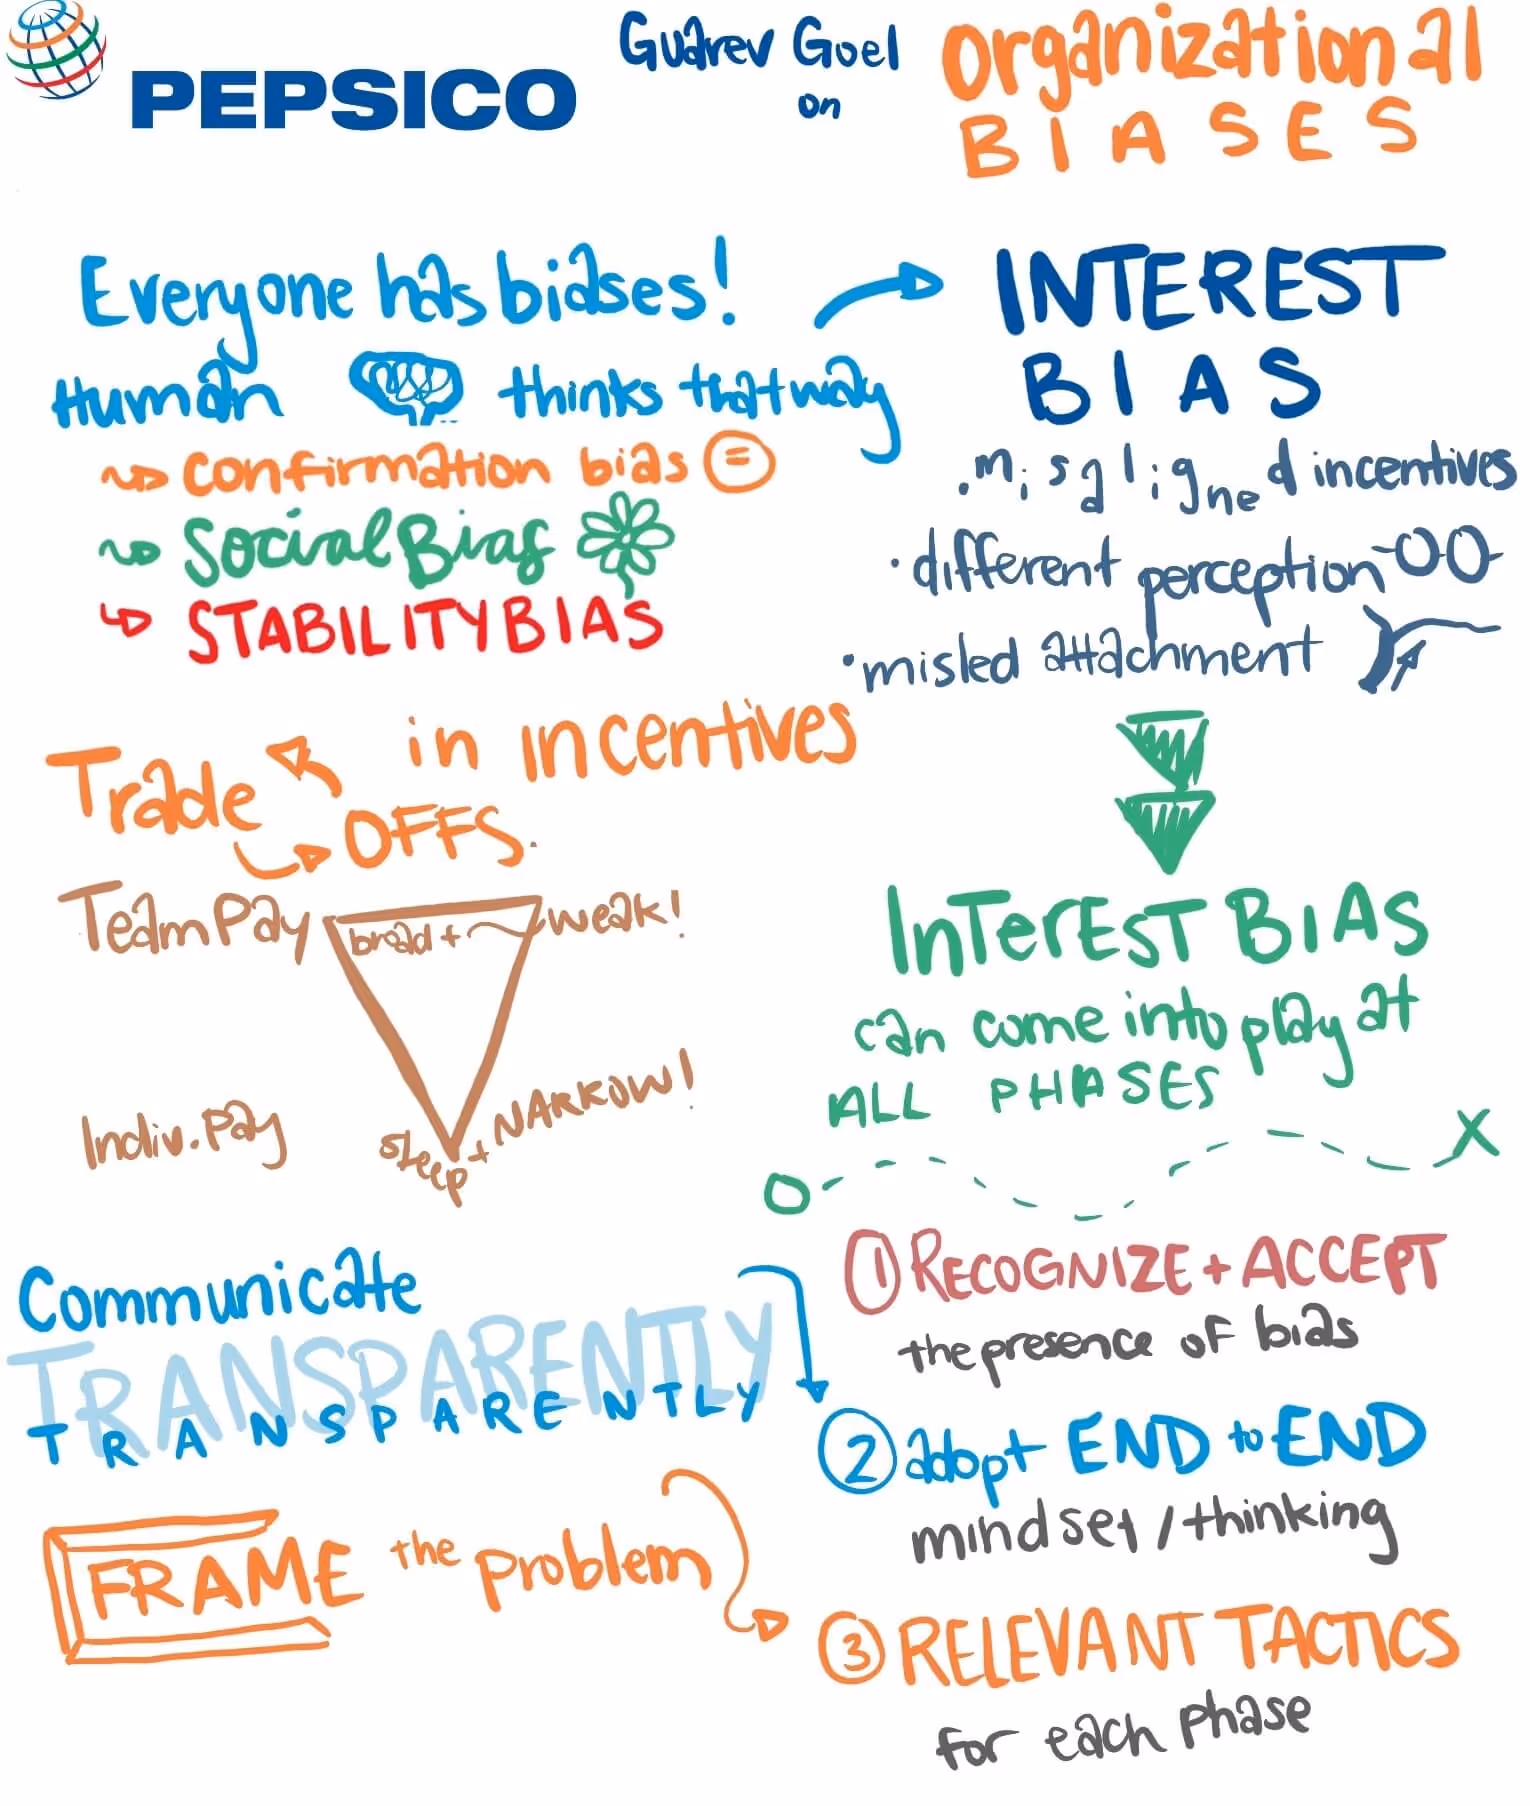 PEPSICO
Guarev Goel
on
Organizational
BIASES
Everyone has biases!
Human thinks that way
confirmation bias =
Social Bias
STABILITY BIAS
INTEREST
BIAS
. misaligned incentives
· different perception
· misled attachment
Trade OFFS.
in incentives
Team Pay broad + weak!
Indiv. Pay steep + NARROW!
InTerEST BIAS
can come into play at
ALL PHASES
X
Communicate
TRANSPARENTLY
TRANSPARENTLY
FRAME the problem
1 RECOGNIZE + ACCEPT
the presence of bias
2 adopt END to END
mindset / thinking
3 RELEVANT TACTICS
for each phase